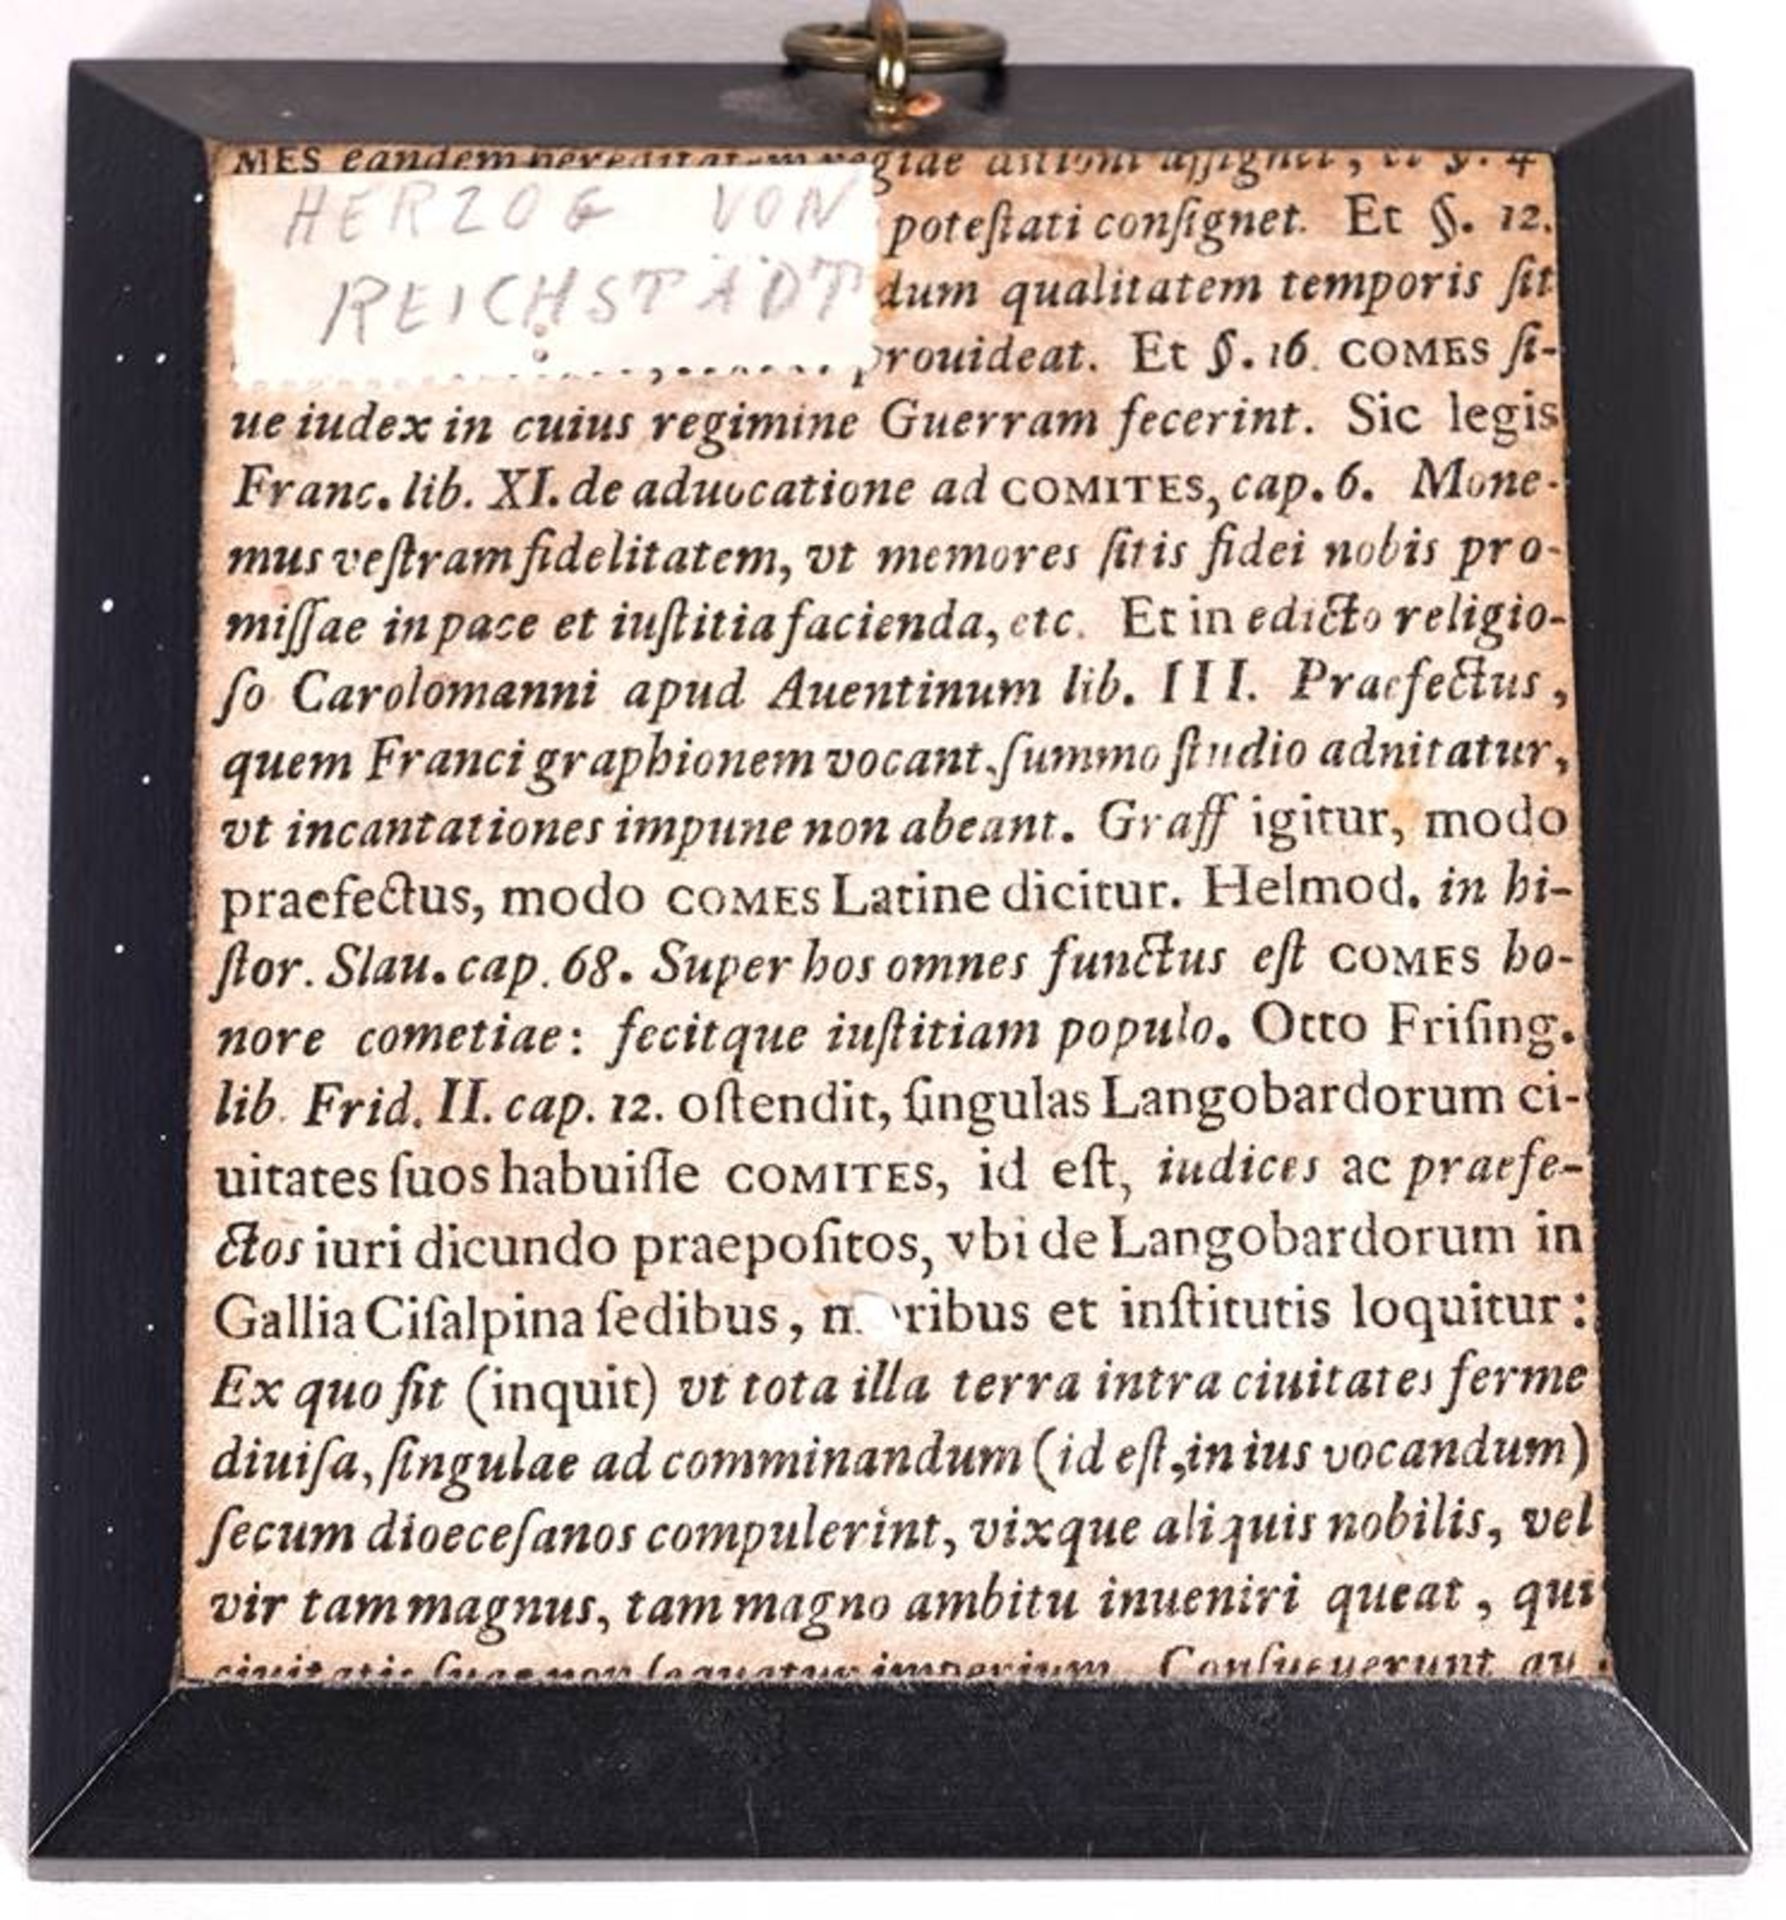 MES eandem hereditatem regiae
HERZOG VON
REICHSTÄDT
poteſtati conſignet. Et §. 12.
dum qualitatem temporis ſit
prouideat. Et §. 16. COMES ſi-
ue iudex in cuius regimine Guerram fecerint. Sic legis
Franc. lib. XI. de aduocatione ad COMITES, cap. 6. Mone-
mus veſtram fidelitatem, vt memores ſitis fidei nobis pro-
miſſae in pace et iuſtitia facienda, etc. Et in edicto religio-
ſo Carolomanni apud Auentinum lib. III. Praefectus,
quem Franci graphionem vocant, ſummo ſtudio adnitatur,
vt incantationes impune non abeant. Graff igitur, modo
praefectus, modo COMES Latine dicitur. Helmod. in hi-
ſtor. Slau. cap. 68. Super hos omnes functus eſt COMES ho-
nore cometiae: fecitque iuſtitiam populo. Otto Friſing.
lib. Frid. II. cap. 12. oſtendit, ſingulas Langobardorum ci-
uitates ſuos habuiſſe COMITES, id eſt, iudices ac praefe-
ctos iuri dicundo praepoſitos, vbi de Langobardorum in
Gallia Ciſalpina ſedibus, m ribus et inſtitutis loquitur:
Ex quo fit (inquit) vt tota illa terra intra ciuitates ferme
diuiſa, ſingulae ad comminandum (id eſt, in ius vocandum)
ſecum dioeceſanos compulerint, vixque aliquis nobilis, vel
vir tam magnus, tam magno ambitu inueniri queat, qui
ciuitatis ſuae non ſequatur imperium. Conſueuerunt au